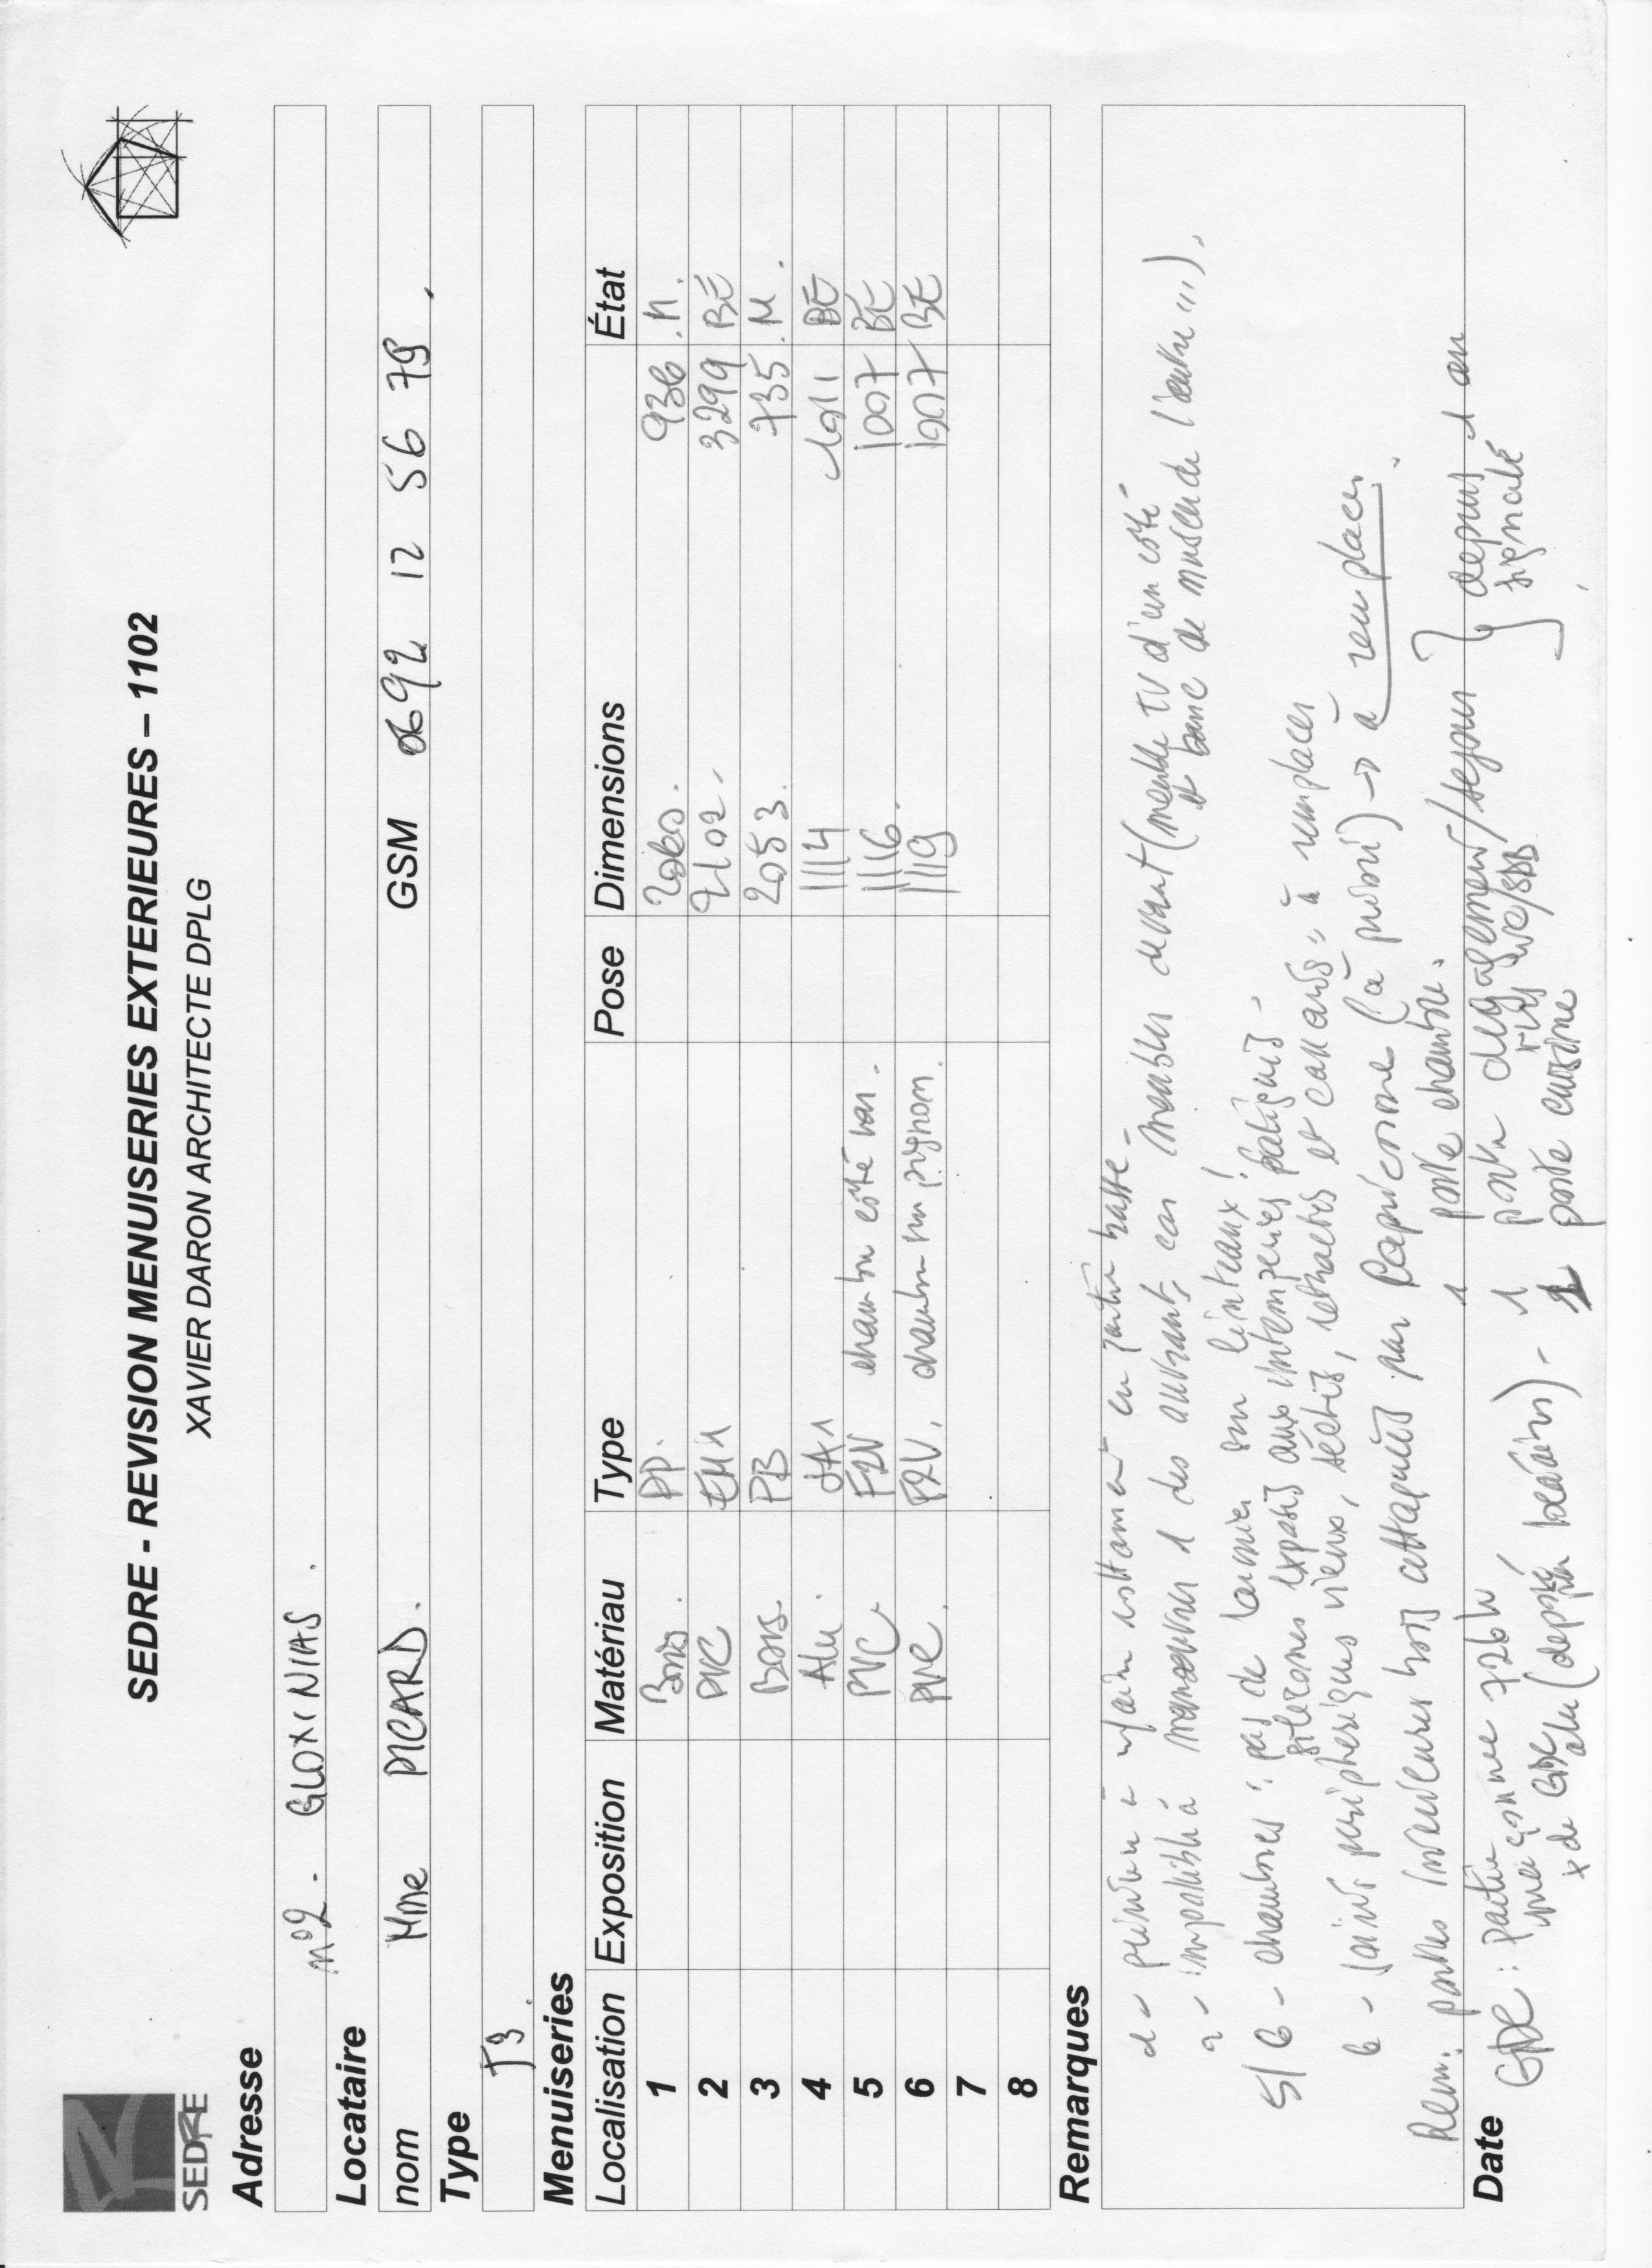 SEDRE
SEDRE - REVISION MENUISERIES EXTERIEURES – 1102
XAVIER DARON ARCHITECTE DPLG
Adresse
n°2 - GLOXINIAS.
Locataire
nom Mme PICARD. GSM 0692 12 56 79.
Type
T3.
Menuiseries
Localisation Exposition Matériau Type Pose Dimensions État
1 Bois. PP. 2060. 936 .M.
2 PVC 2102. 3299 BÉ
3 Bois. PB 2053. 735 .M.
4 Alu. JA1 1114 1011 BÉ
5 PVC F2V chambre côté var. 1116 1007 BÉ
6 PVC. F2V. chambre sur pignon. 1119. 1007 BE
7
8
Remarques
peinture à refaire notamment en partie basse.
2 - impossible à manoeuvrer 1 des ouvrants, car meubles devant (meuble TV d'un côté
et banc de muscu de l'autre...).
5/6 - chambres : pas de larmier sur linteaux!
silicones exposés aux intempéries fatigués -
6 - joints périphériques vieux, séchés, rétractés et cassants, à remplacer
Rem: portes intérieures bois attaquées par Capricorne (à priori) → à remplacer.
1 porte chambre.
1 porte dégagement/séjour
wc/SDB
porte cuisine
depuis 1 an
signalé
Date
GDC: partie maçonnée 726 H
x de GDC alu (déposé par locataire) -